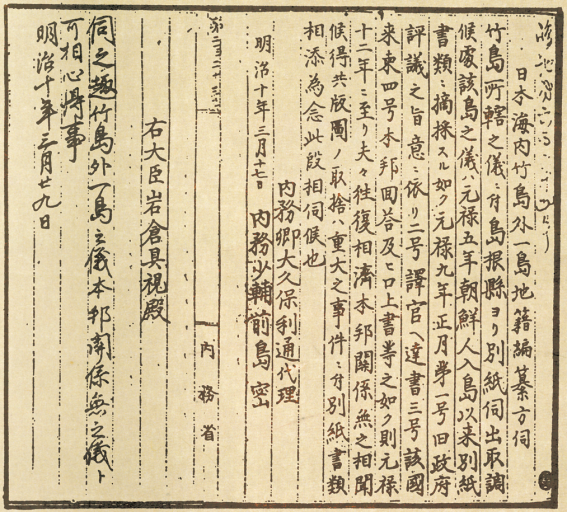 日本海内竹島外一島地籍編纂方伺
竹島所轄之儀ニ付島根縣ヨリ別紙伺出取調
候處該島之儀ハ元禄五年朝鮮人入島以来別紙
書類ニ摘採スル如ク元禄九年正月第一号旧政府
評議之旨意ニ依リ二号譯官ヘ達書三号該國
来柬四号本邦回答及ヒ口上書等之如ク則元禄
十二年ニ至リ夫々往復相濟本邦関係無之相聞
候得共版圖ノ取捨ハ重大之事件ニ付別紙書類
相添為念此段相伺候也
内務卿大久保利通代理
明治十年三月十七日 内務少輔前島密
内務省
右大臣岩倉具視殿
伺之趣竹島外一島之儀本邦関係無之儀ト
可相心得事
明治十年三月廿九日